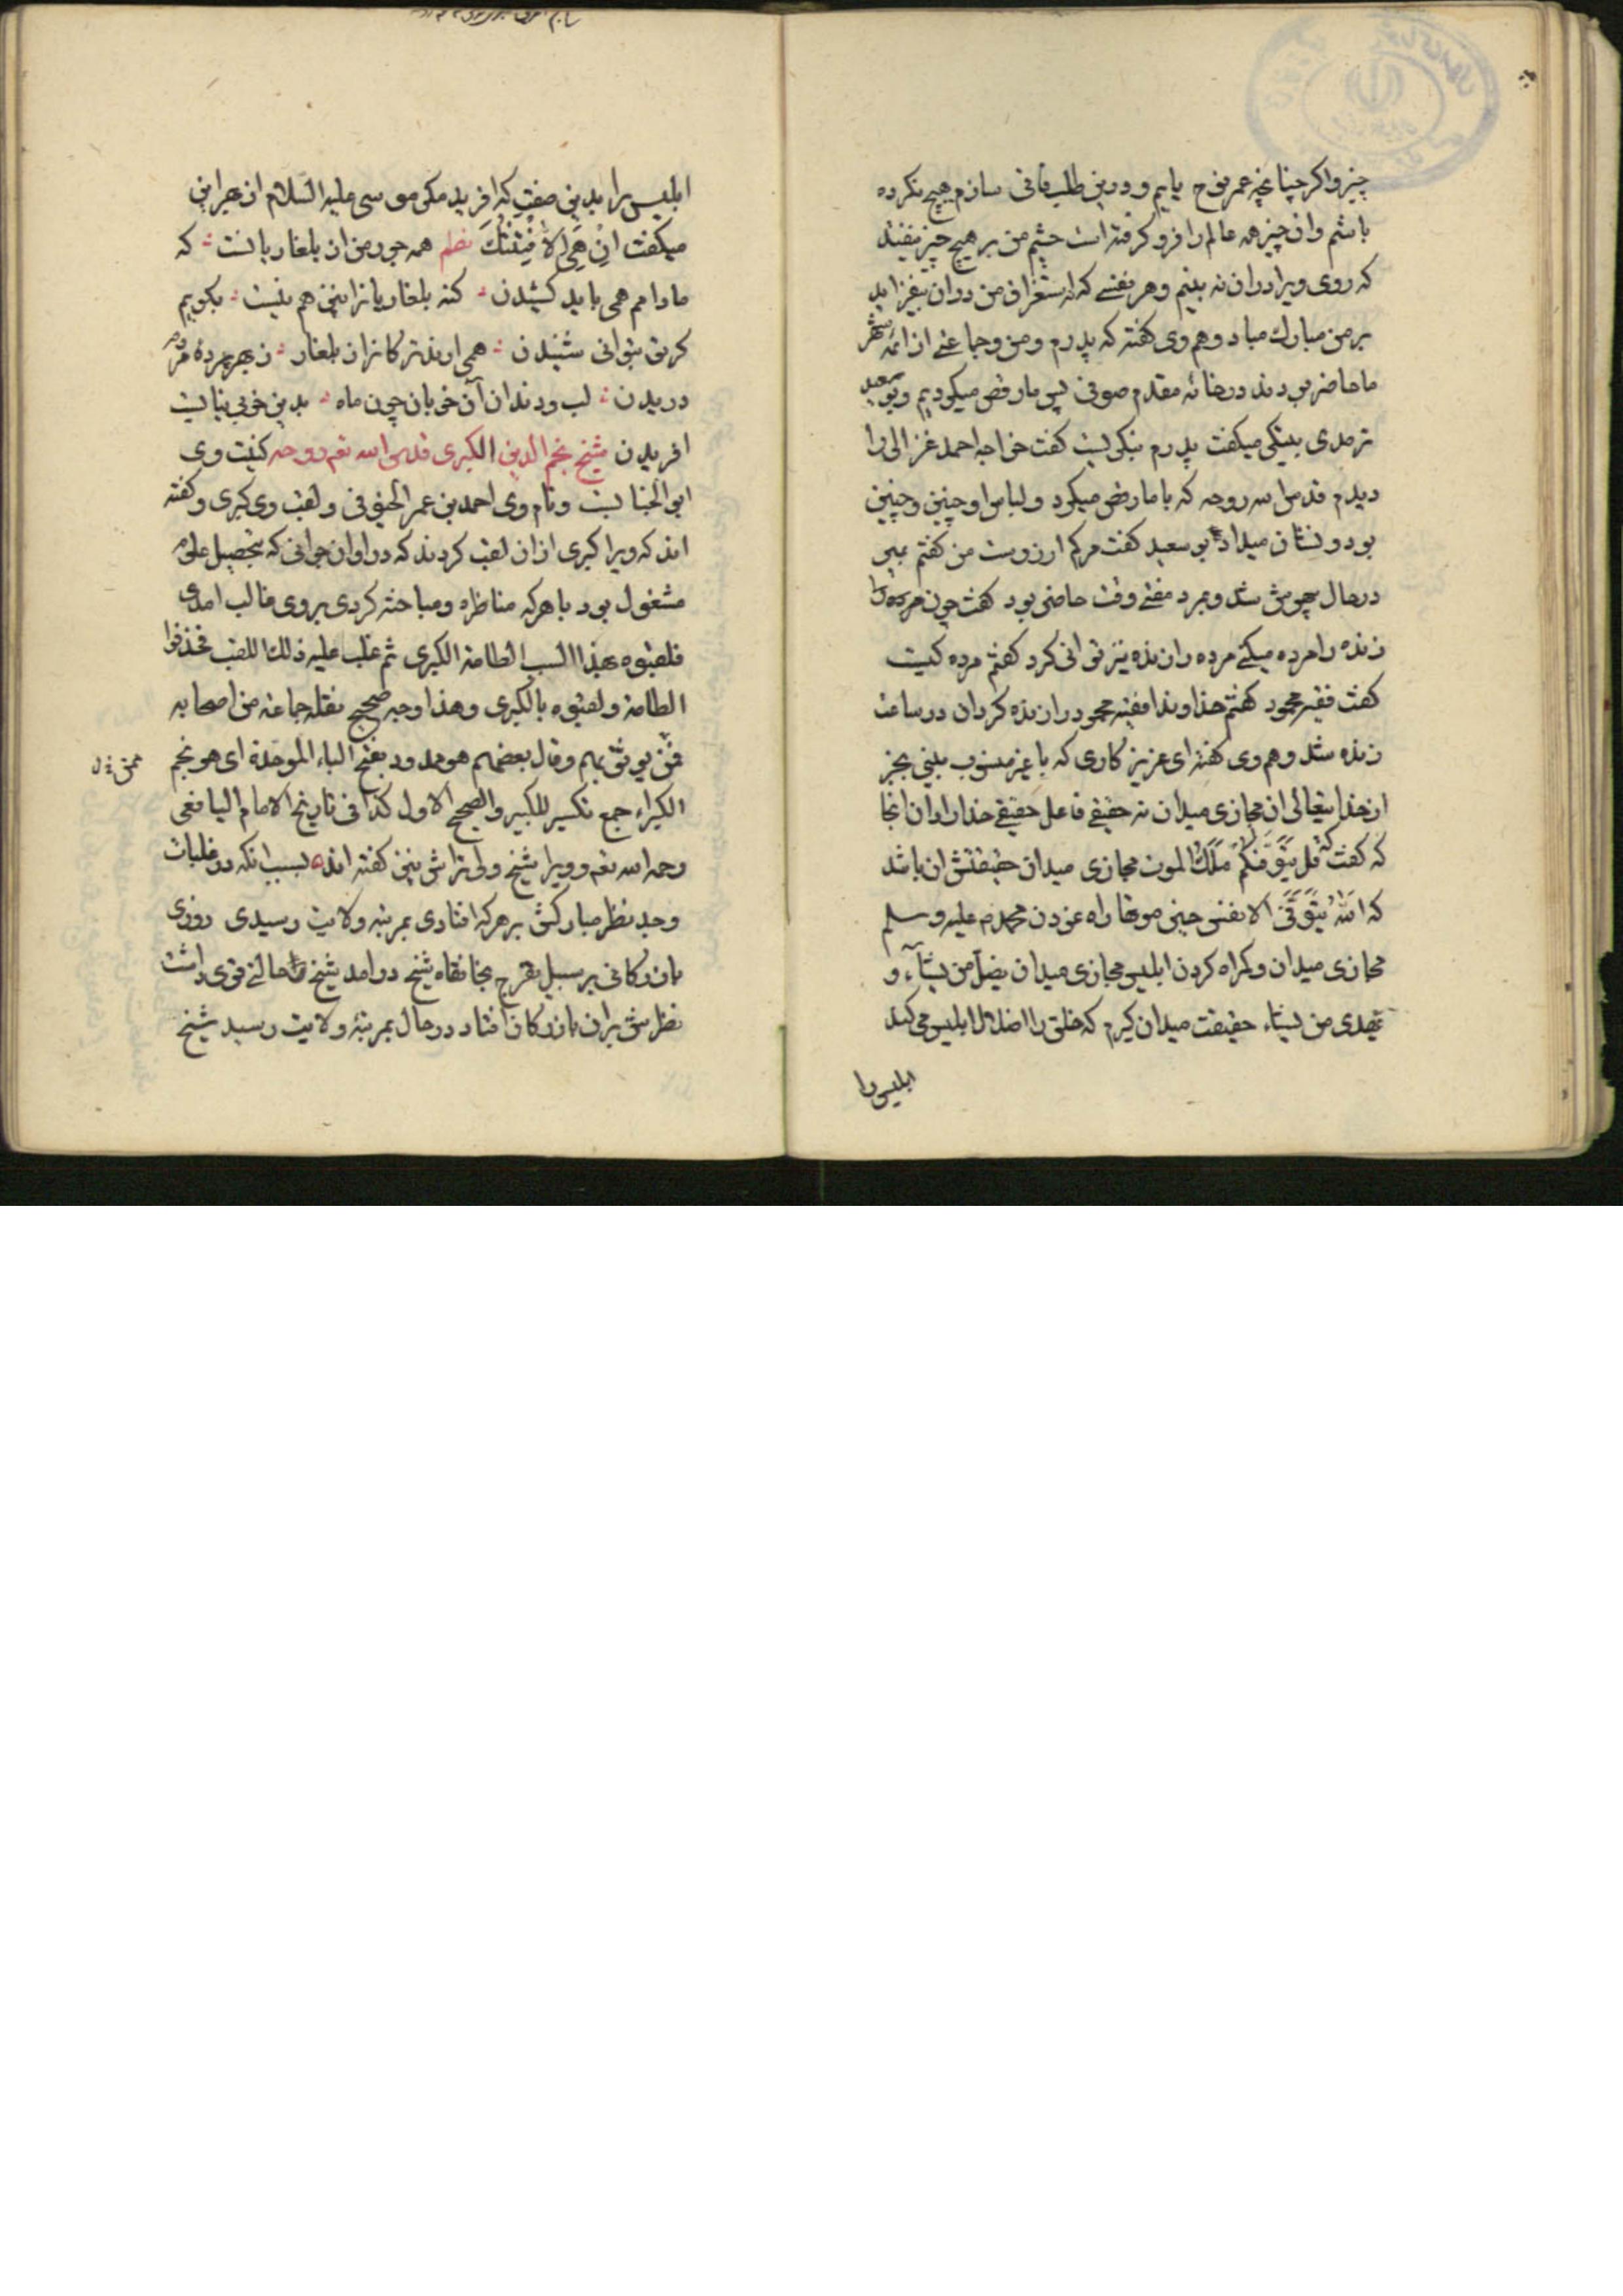 چیز واکر چنانچه عمر نوح یابم و درین طلب فانی سازم هیچ نکرده
باشم وان چیز همه عالم را فرو کرفته است چشم من بر هیچ چیز نیفتد
که روی ویرا دران نه بینم و هر نفسی که استغراق من دران نیفزاید
بر من مبارک مباد وهم وی کفته که پدرم ومن وجماعتی از ائمه شهر
ما حاضر بودند درخانه مقدم صوفی پس ما رقص میکردیم وبو سعید
ترمذی بیتکی میکفت پدرم بنکریست کفت خواجه احمد غزالی را
دیدم قدس الله روحه که با ما رقص میکرد ولباس او چنین وچنین
بود ونشان میداد بو سعید کفت مرکم ارزوست من کفتم بمیر
درحال بیهوش شد وبمرد مفتی وقت حاضر بود کفت چون
زنده را مرده میکنی مرده را زنده نیز توانی کرد کفتم مرده کیست
کفت فقیه محمود کفتم خداوندا فقیه محمود را زنده کردان در ساعت
زنده شد وهم وی کفته ای عزیز کاری که با غیر منسوب بینی بجز
از خدا تعالی ان مجازی میدان نه حقیقی فاعل حقیقی خدا را دان انجا
که کفت قل یتوفیکم ملک الموت مجازی میدان حقیقتش ان باشد
که الله یتوفی الانفس حین موتها راه نمودن محمد م علیه وسلم
مجازی میدان وکمراه کردن ابلیس مجازی میدان یضل من یشآء و
یهدی من یشاء حقیقت میدان کیرم که خلق را اضلال ابلیس می کند
ابلیس را
ابلیس را بدین صفت که افرید مکی موسی علیه السلام از بهر این
میکفت ان هی الا فتنتک نظم همه جور من از بلغاریانست که
مادامم همی باید کشیدن کنه بلغاریانرا نیز هم نیست بکویم
کر تو بتوانی شنیدن همی ارند ترکانرا ز بلغار ز بهر پرده مردم
دریدن لب ودندان آن خوبان چون ماه بدین خوبی نبایست
افریدن شیخ نجم الدین الکبری قدس الله تعم روحه کنیت وی
ابو الجنابست ونام وی احمد بن عمر الخیوقی ولقب وی کبری وکفته
اند که ویرا کبری ازان لقب کردند که در اوان جوانی که بتحصیل علوم
مشغول بود با هرکه مناظره ومباحثه کردی بر وی غالب امدی
فلقبوه بهذا السبب الطامة الکبری ثم غلب علیه ذلک اللقب فحذفوا
الطامة ولقبوه بالکبری وهذا وجه صحیح نقله جماعة من اصحابه
ممن یوثق بهم وقال بعضهم هو ممدود بفتح الباء الموحدة ای هو نجم
الکبراء جمع تکسیر للکبیر والصحیح الاول کذا فی تاریخ الامام الیافعی
رحمه الله تعم وویرا شیخ ولی تراش نیز کفته اند بسبب انکه در غلبات
وجد نظر مبارکش بر هرکه افتادی بمرتبه ولایت رسیدی روزی
بازرکانی بر سبیل تفرج بخانقاه شیخ درامد شیخ را حالتی قوی داشت
نظرش بران بازرکان افتاد درحال بمرتبه ولایت رسید شیخ